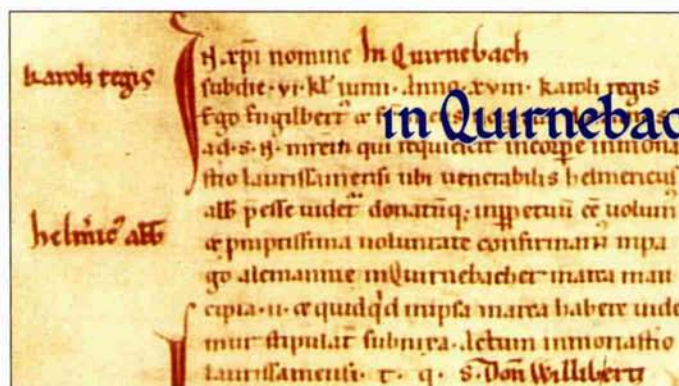 karoli regis
In xpi nomine In Quirnebach
sub die vi kl iunii anno xviii karoli regis
Ego Engilbert &
in Quirnebac
ad s N mrem qui requiescit in corpore in mona
sterio laurissamensi ubi venerabilis helmericus
helmic abb
abb pesse videt donatuq; inppetuu ee volum
& pmptissima voluntate confirmam in pa
go alemannie in Quirnebacher marca man
cipia ii & quidqd in ipsa marca habere vide
mur stipulat subnixa Actum in monasterio
laurissamensi t q s Don Williberti